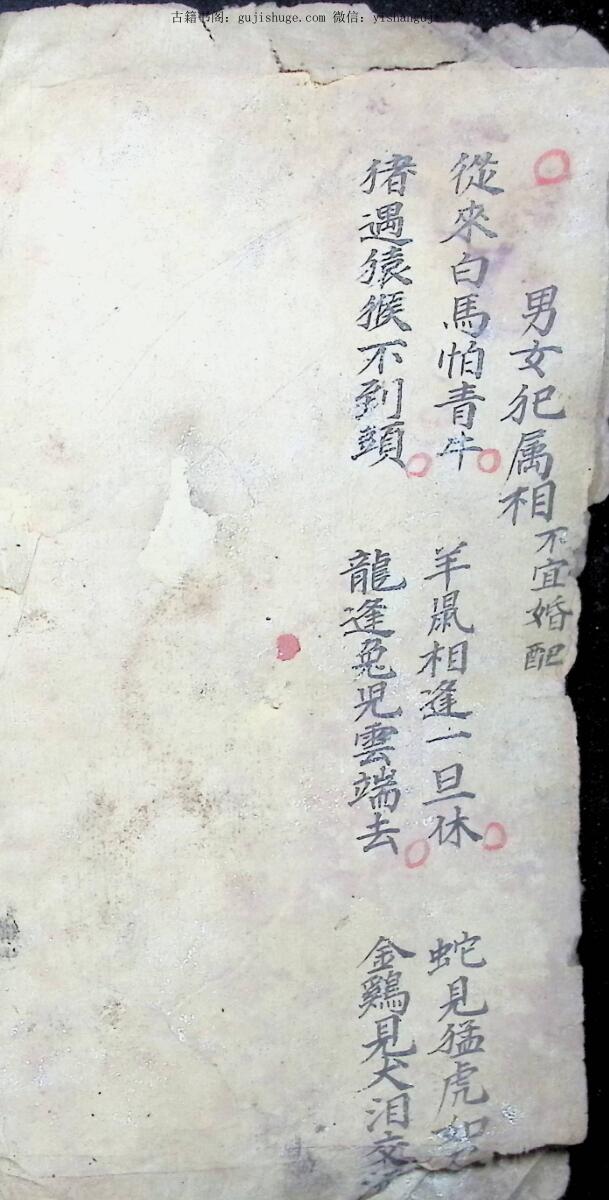 古籍书阁：gujishuge.com 微信：yishanguji
男女犯属相不宜婚配
從來白馬怕青牛 羊鼠相逢一旦休 蛇見猛虎如
猪遇猿猴不到頭 龍逢兔児雲端去 金鷄見犬泪交